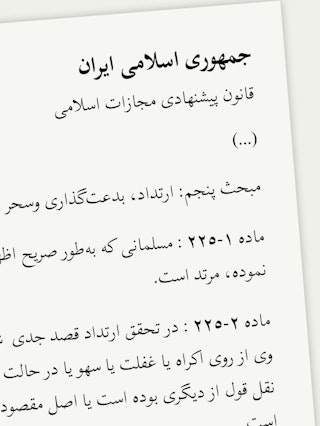 جمهوری اسلامی ایران
قانون پیشنهادی مجازات اسلامی
(...)
مبحث پنجم: ارتداد، بدعت‌گذاری وسحر
ماده ۱-۲۲۵ : مسلمانی که به‌طور صریح
نموده، مرتد است.
ماده ۲-۲۲۵ : در تحقق ارتداد قصد جدی
وی از روی اکراه یا غفلت یا سهو یا در حالت
نقل قول از دیگری بوده است یا اصل مقصود